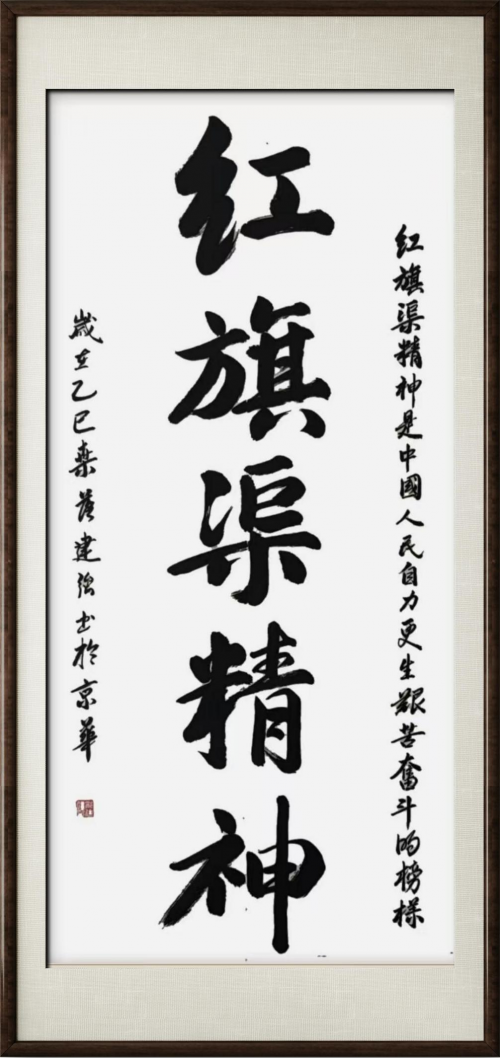 红旗渠精神是中國人民自力更生艱苦奮斗的榜樣
红旗渠精神
歲在乙巳建強书於京華